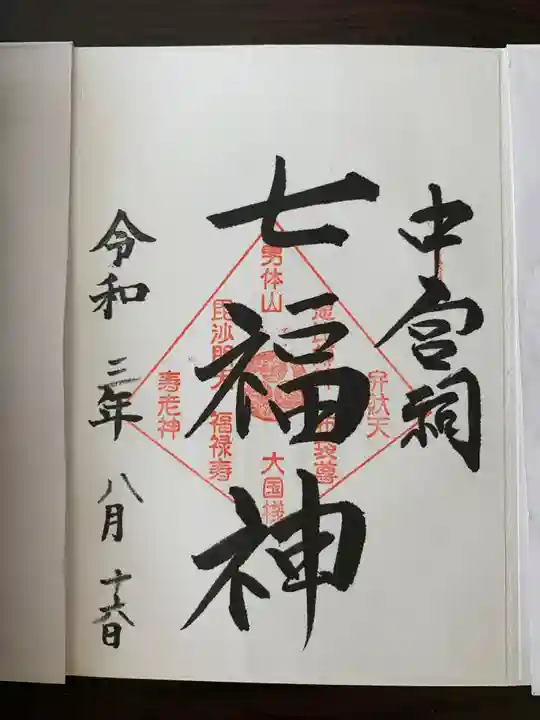 中宮祠
七福神
令和三年八月十六日
男体山
弁財天
布袋尊
大国様
福禄寿
寿老神